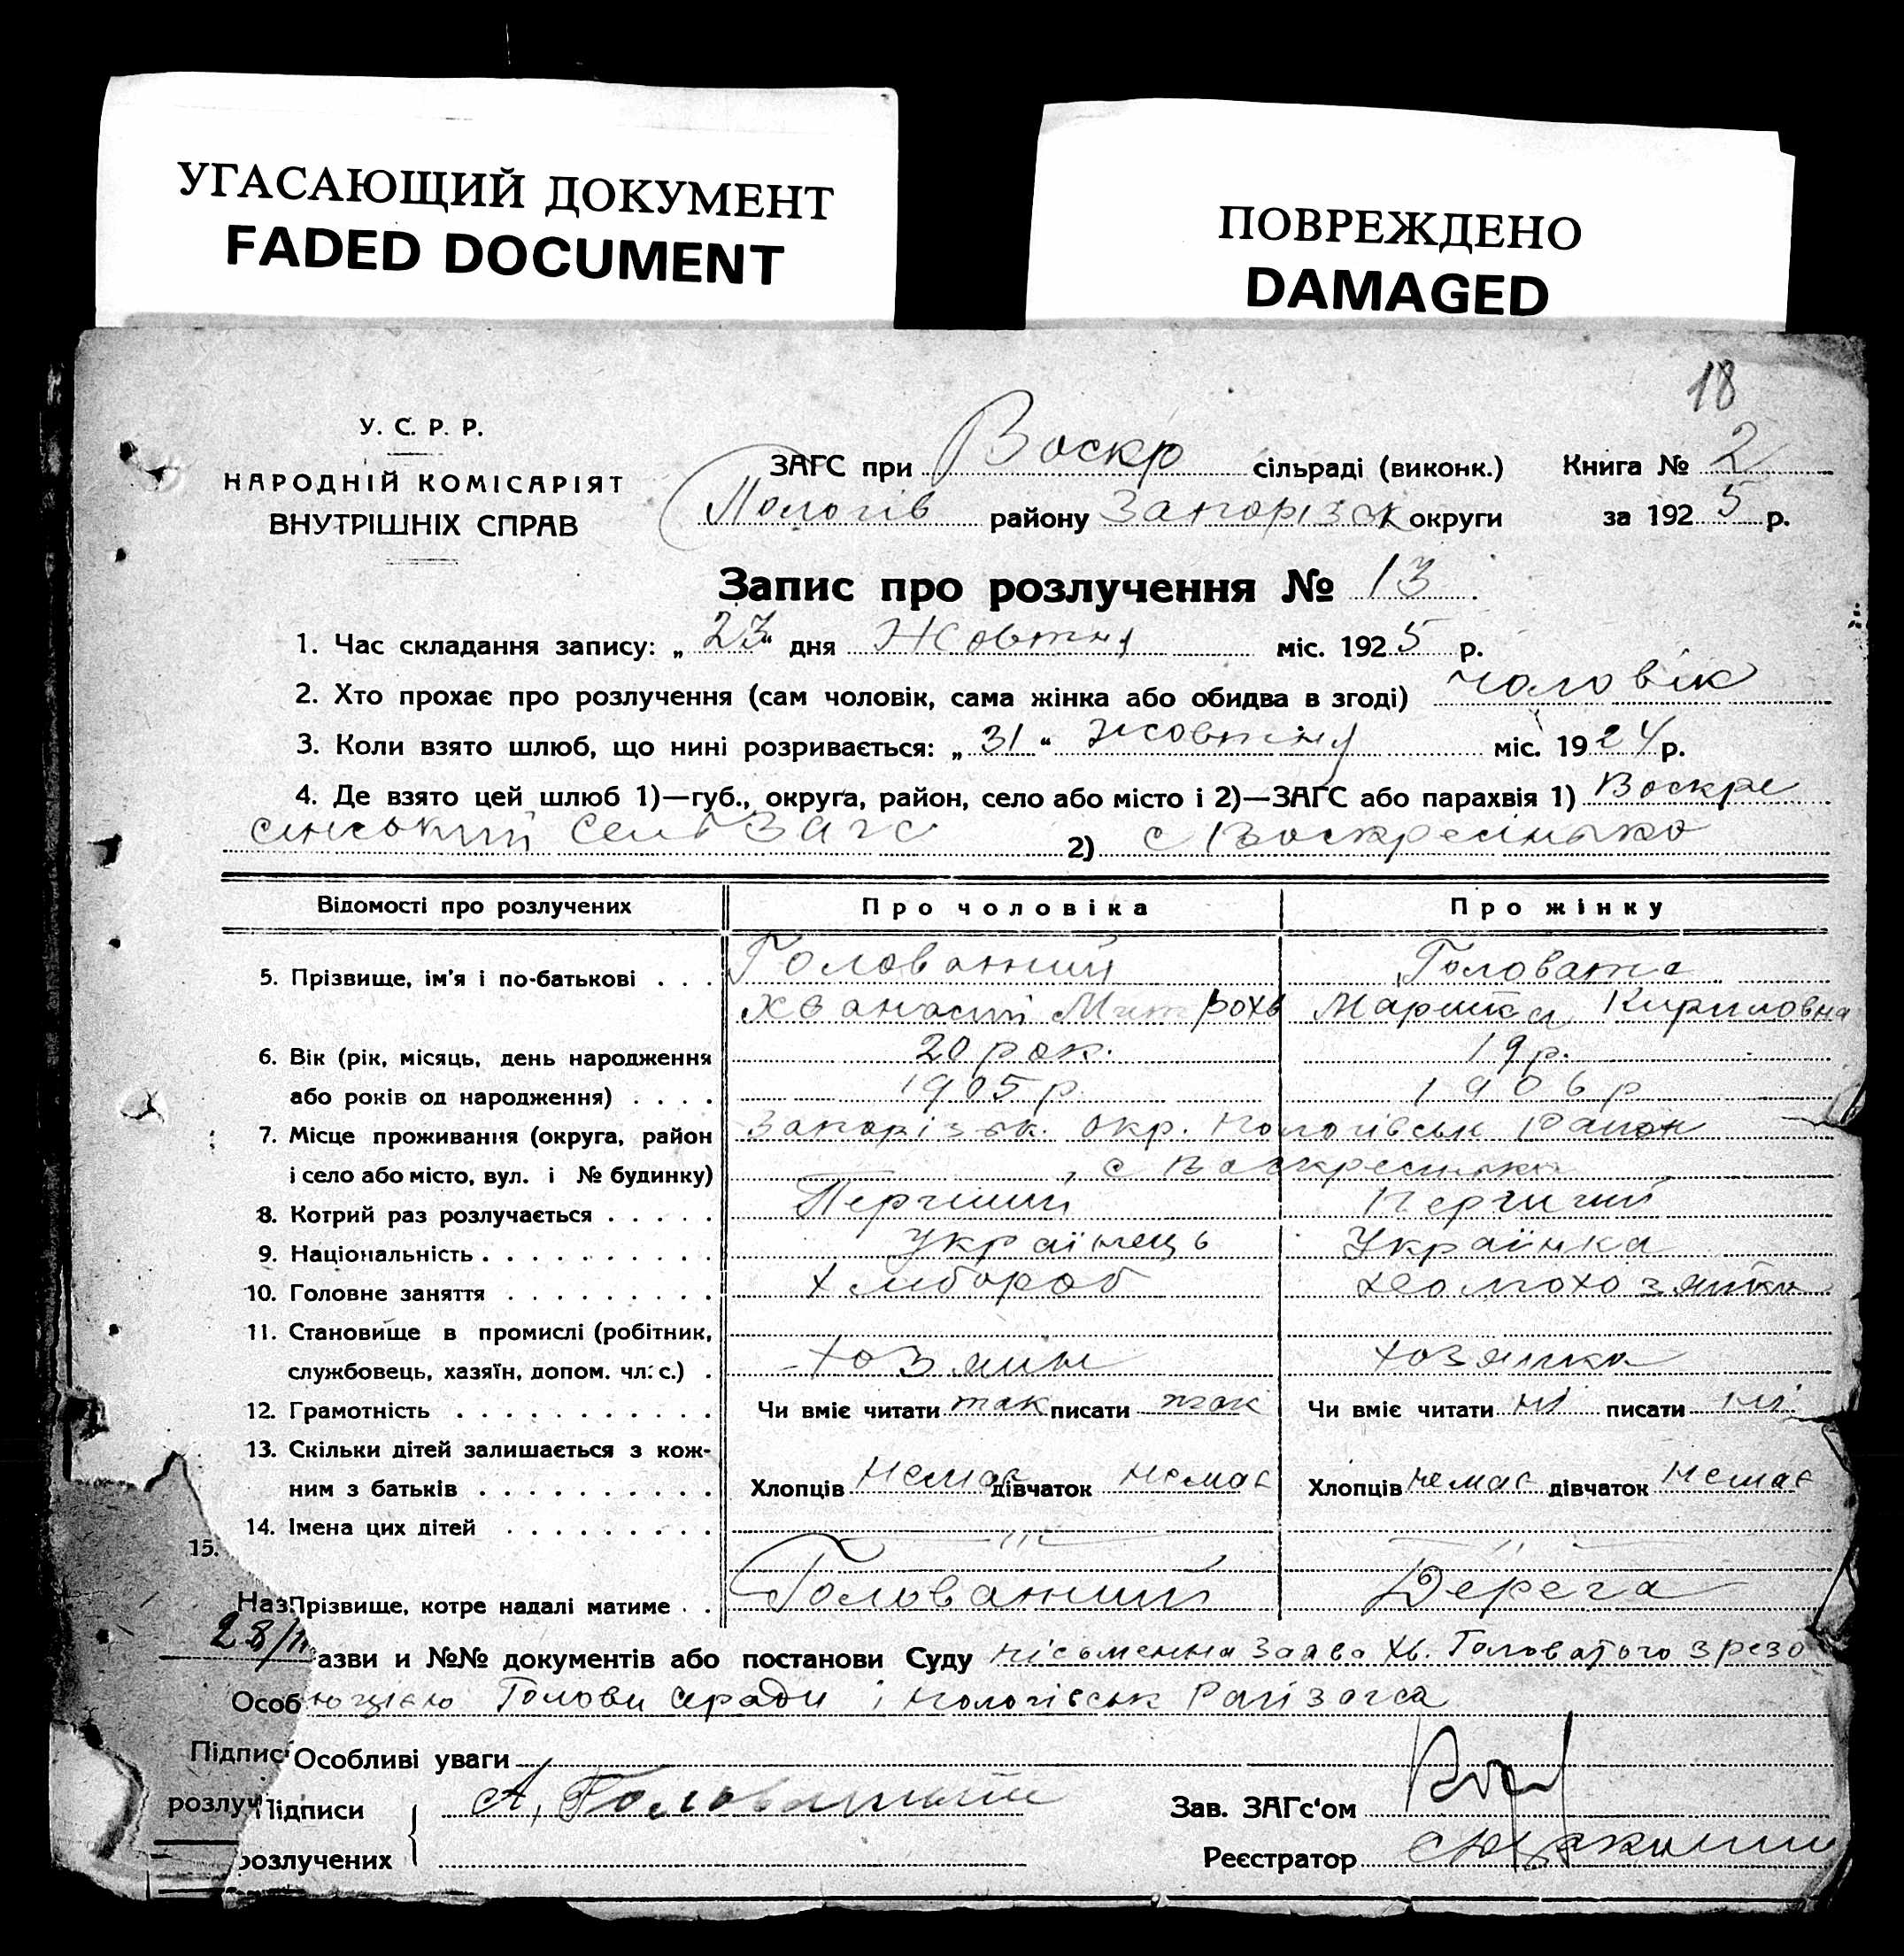 УГАСАЮЩИЙ ДОКУМЕНТ
FADED DOCUMENT
ПОВРЕЖДЕНО
DAMAGED
18
У. С. Р. Р.
НАРОДНІЙ КОМІСАРІЯТ
ВНУТРІШНІХ СПРАВ
ЗАГС при Воскр сільраді (виконк.) Книга № 2
Пологів району Запорізьк округи за 1925 р.
Запис про розлучення № 13
1. Час складання запису: „23" дня Жовтня міс. 1925 р.
2. Хто прохає про розлучення (сам чоловік, сама жінка або обидва в згоді) чоловік
3. Коли взято шлюб, що нині розривається: „31" жовтня міс. 1924 р.
4. Де взято цей шлюб 1)—губ., округа, район, село або місто і 2)—ЗАГС або парахвія 1) Воскре
сінський СельЗагс 2) с Воскресінька
Відомості про розлучених Про чоловіка Про жінку
5. Прізвище, ім'я і по-батькові . . . Головатий Головата
Хванасій Митрохв Маришка Кириловна
6. Вік (рік, місяць, день народження 20 рок. 19 р.
або років од народження) . . . . 1905 р. 1906 р
7. Місце проживання (округа, район Запорізьк. Окр. Пологівськ Район
і село або місто, вул. і № будинку) с Воскресінька
8. Котрий раз розлучається . . . . . Перший Перший
9. Національність . . . . . . . . . . Українець Українка
10. Головне заняття . . . . . . . . . Хлібороб Домохозяйка
11. Становище в промислі (робітник,
службовець, хазяїн, допом. чл. с.) . хозяин хозяйка
12. Грамотність . . . . . . . . . . . Чи вміє читати так писати так Чи вміє читати ні писати ні
13. Скільки дітей залишається з кож-
ним з батьків . . . . . . . . . . Хлопців немає дівчаток немає Хлопців немає дівчаток немає
14. Імена цих дітей . . . . . . . . .
15.
Наз Прізвище, котре надалі матиме . . Головатий Дерега
28/
азви и №№ документів або постанови Суду письменна заява Хв. Головатого з резо
Особ юцією Голови с/ради і Пологівськ Райзагса
Підпис Особливі уваги
розлуч Підписи А. Головатий Зав. ЗАГс'ом
розлучених Реєстратор